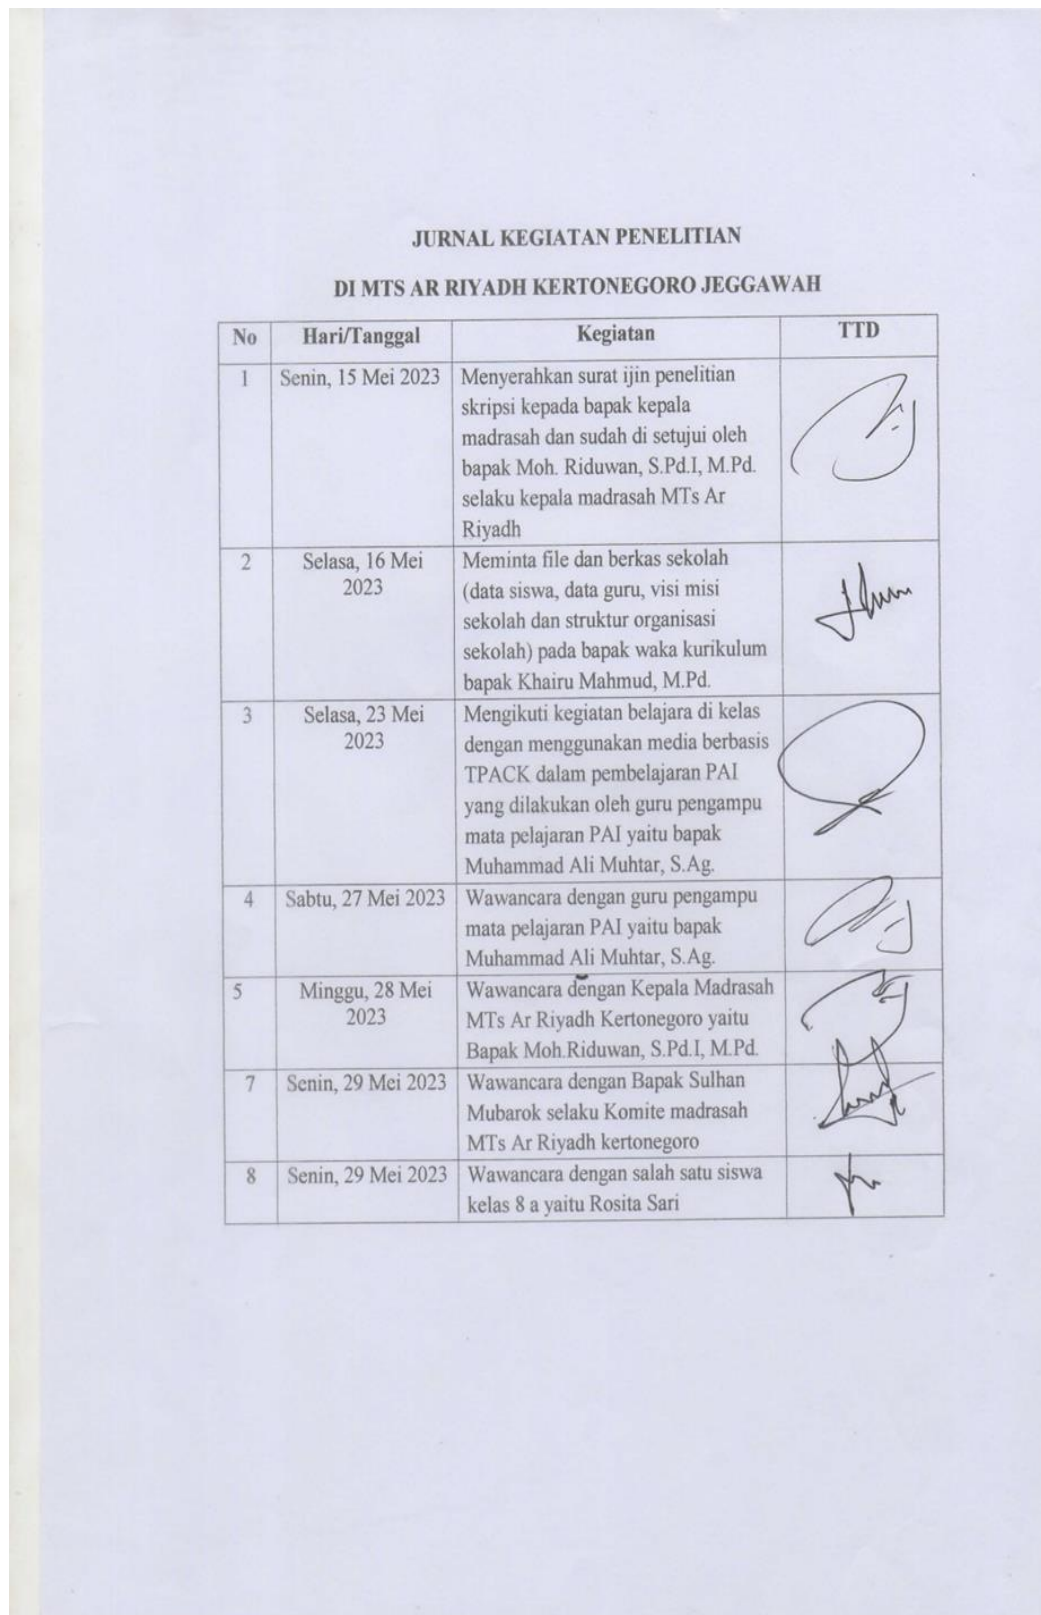 JURNAL KEGIATAN PENELITIAN
DI MTS AR RIYADH KERTONEGORO JEGGAWAH
No Hari/Tanggal Kegiatan TTD
1 Senin, 15 Mei 2023 Menyerahkan surat ijin penelitian
skripsi kepada bapak kepala
madrasah dan sudah di setujui oleh
bapak Moh. Riduwan, S.Pd.I, M.Pd.
selaku kepala madrasah MTs Ar
Riyadh
2 Selasa, 16 Mei 2023 Meminta file dan berkas sekolah
(data siswa, data guru, visi misi
sekolah dan struktur organisasi
sekolah) pada bapak waka kurikulum
bapak Khairu Mahmud, M.Pd.
3 Selasa, 23 Mei 2023 Mengikuti kegiatan belajara di kelas
dengan menggunakan media berbasis
TPACK dalam pembelajaran PAI
yang dilakukan oleh guru pengampu
mata pelajaran PAI yaitu bapak
Muhammad Ali Muhtar, S.Ag.
4 Sabtu, 27 Mei 2023 Wawancara dengan guru pengampu
mata pelajaran PAI yaitu bapak
Muhammad Ali Muhtar, S.Ag.
5 Minggu, 28 Mei 2023 Wawancara dengan Kepala Madrasah
MTs Ar Riyadh Kertonegoro yaitu
Bapak Moh.Riduwan, S.Pd.I, M.Pd.
7 Senin, 29 Mei 2023 Wawancara dengan Bapak Sulhan
Mubarok selaku Komite madrasah
MTs Ar Riyadh kertonegoro
8 Senin, 29 Mei 2023 Wawancara dengan salah satu siswa
kelas 8 a yaitu Rosita Sari